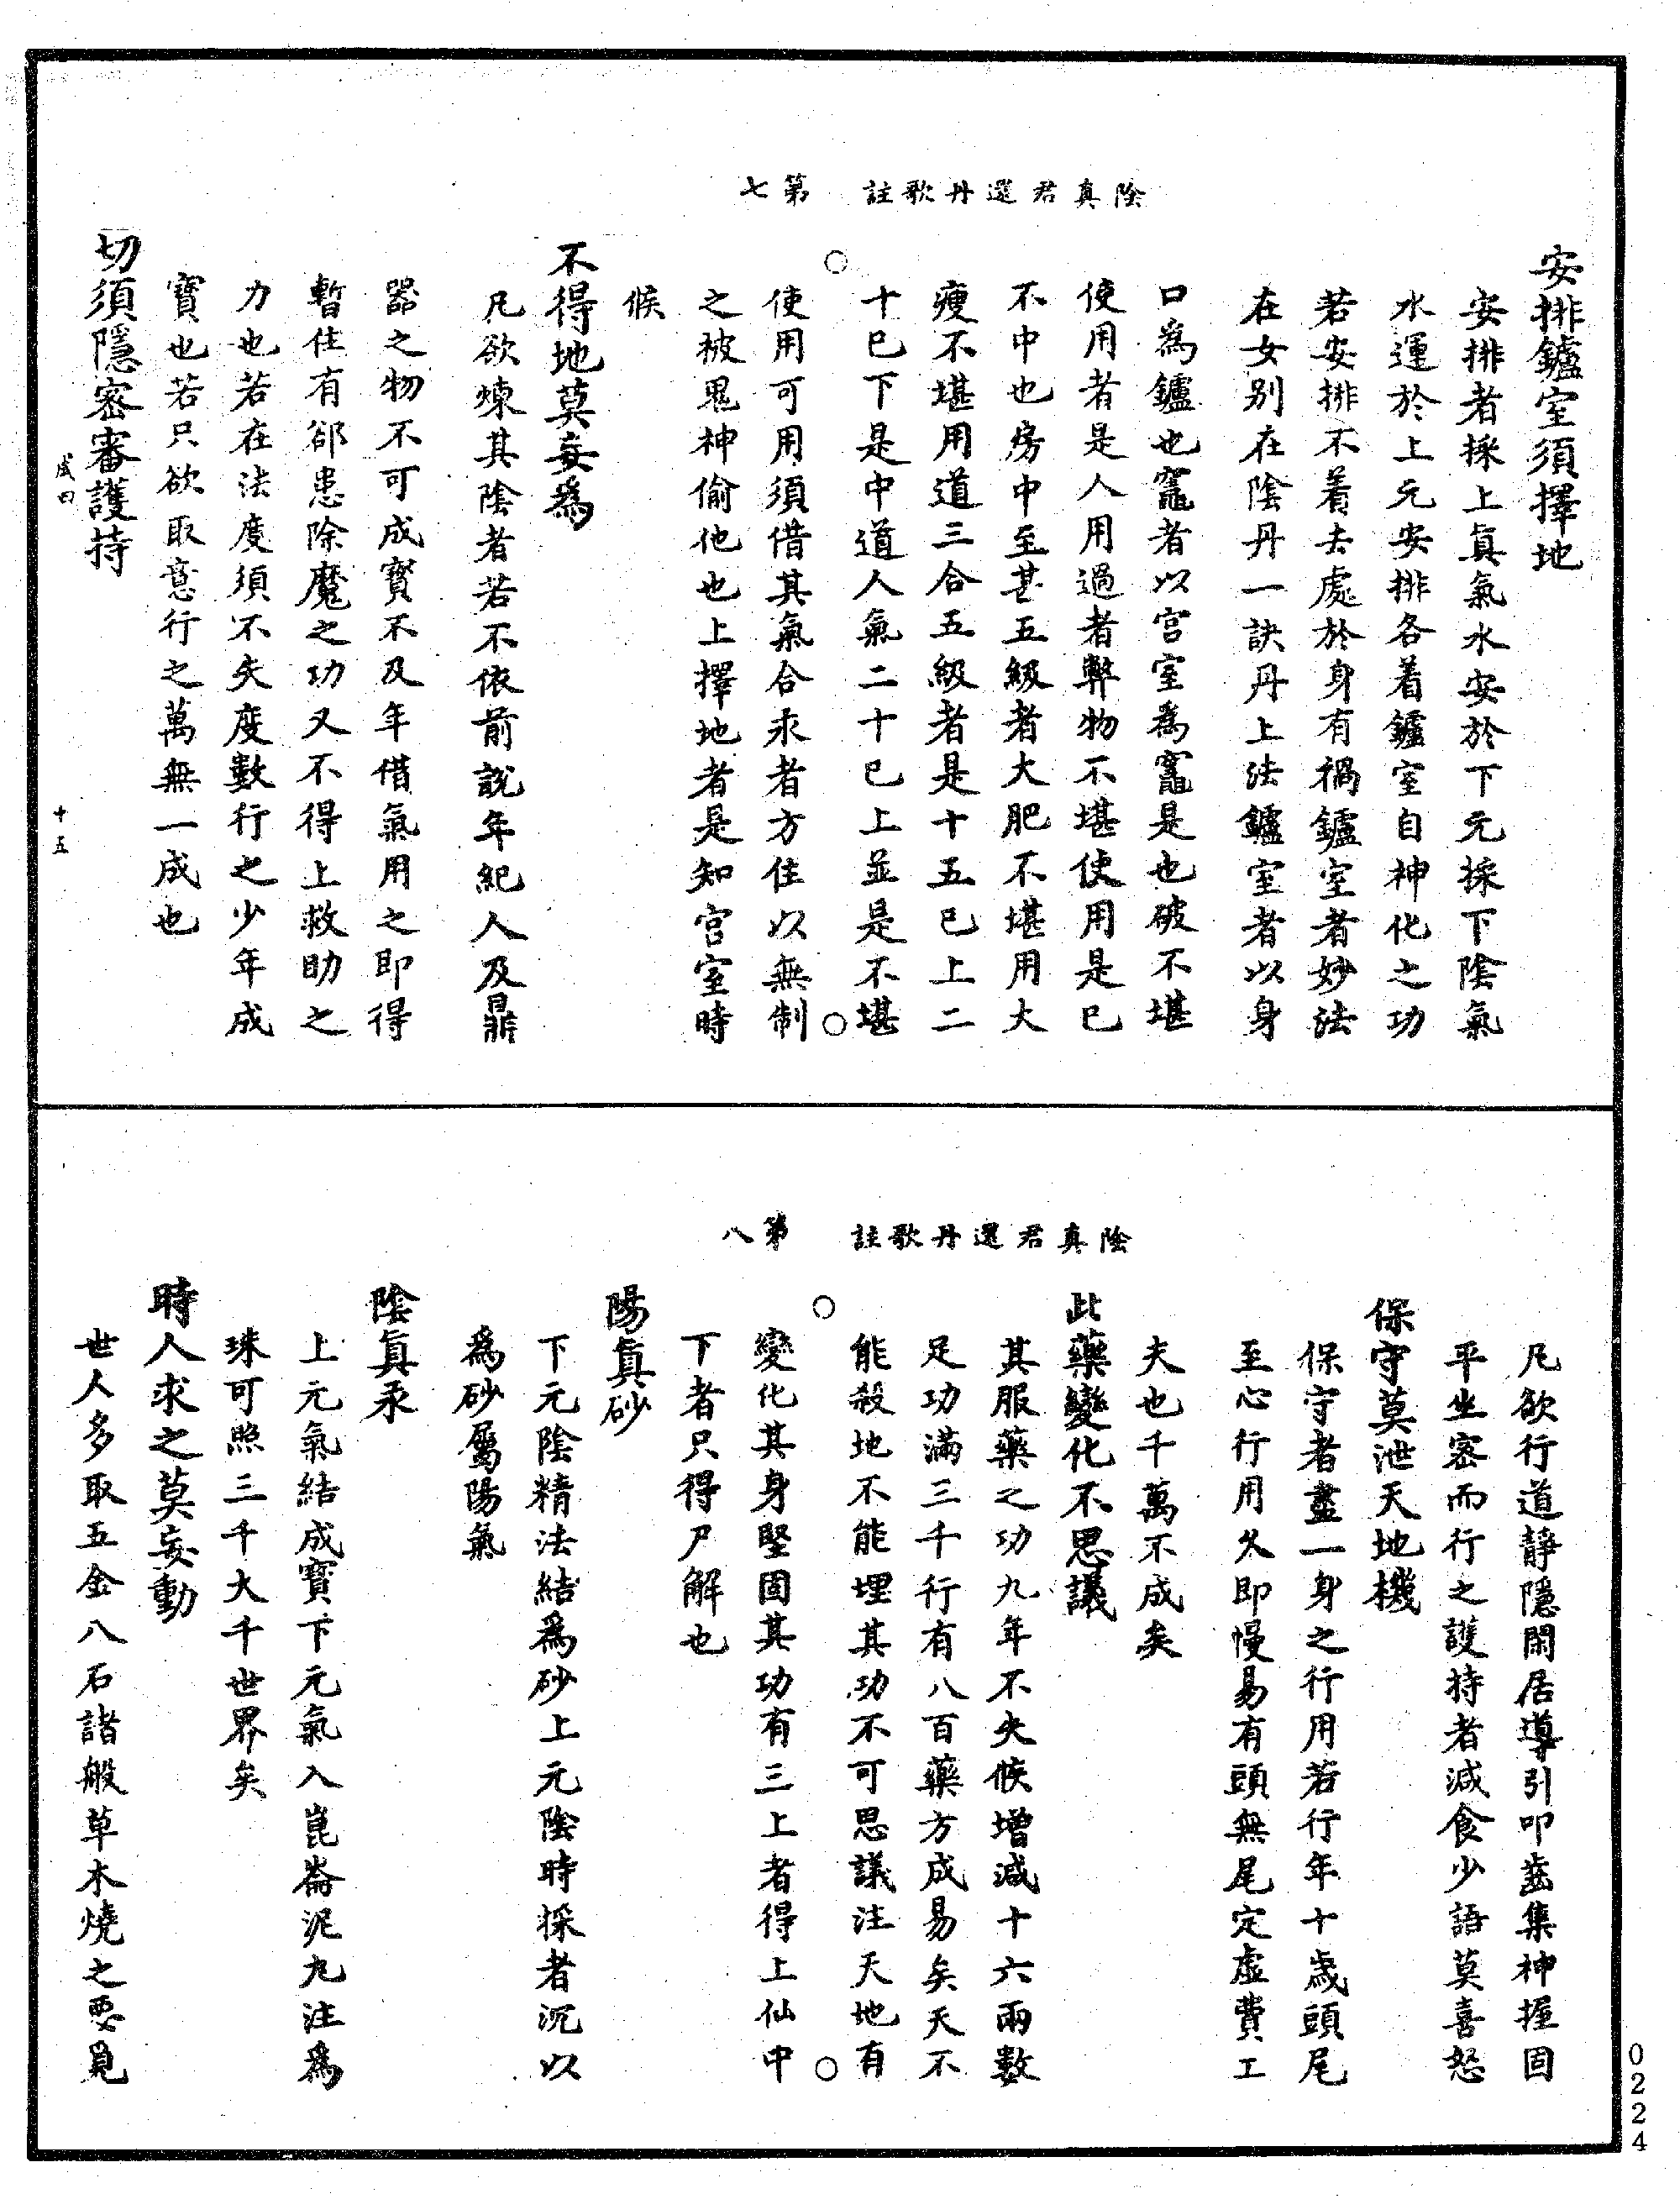 陰真君還丹歌註　第七
安排鑪室須擇地
安排者採上眞氣水安於下元採下陰氣
水運於上元安排各着鑪室自神化之功
若安排不着去處於身有禍鑪室者妙法
在女别在陰丹一訣丹上法鑪室者以身
口爲鑪也竈者以宫室爲竈是也破不堪
使用者是人用過者弊物不堪使用是巳
不中也房中至甚五級者大肥不堪用大
瘦不堪用道三合五級者是十五巳上二
十巳下是中道人氣二十巳上並是不堪
使用可用須借其氣合汞者方住以無制
之被鬼神偷他也上擇地者是知宫室時
候
不得地莫妄爲
凡欲煉其陰者若不依前説年紀人及鼎
器之物不可成寳不及年借氣用之即得
暫住有郤患除魔之功又不得上救助之
力也若在法度須不失度數行之少年成
寳也若只欲取意行之萬無一成也
切須隱密審護持
咸四
十五
陰真君還丹歌註　第八
凡欲行道靜隱閑居導引叩齒集神握固
平坐密而行之護持者減食少語莫喜怒
保守莫泄天地機
保守者盡一身之行用若行年十歲頭尾
至心行用久即慢易有頭無尾定虚費工
夫也千萬不成矣
此藥變化不思議
其服藥之功九年不失候增減十六兩數
足功滿三千行有八百藥方成易矣天不
能殺地不能埋其功不可思議注天地有
變化其身堅固其功有三上者得上仙中
下者只得尸解也
陽眞砂
下元陰精法結爲砂上元陰時採者沉以
爲砂屬陽氣
陰眞汞
上元氣結成寳下元氣入崑崙泥丸注爲
珠可照三千大千世界矣
時人求之莫妄動
世人多取五金八石諸般草木燒之要覓
0224